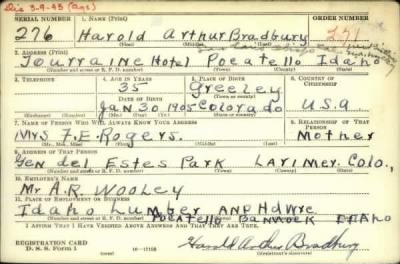 Dis 3-9-43 (Age)
SERIAL NUMBER 1. NAME (Print)
276 Harold Arthur Bradbury 271
(First) (Middle) (Last)
2. ADDRESS (Print)
Tourraine Hotel Pocatello Idaho
(Number and street or R. F. D. number) (Town) (County) (State)
3. TELEPHONE 4. AGE IN YEARS 5. PLACE OF BIRTH 6. COUNTRY OF CITIZENSHIP
35 Greeley
DATE OF BIRTH (Town or county)
Jan 30 1905 Colorado U.S.A
(Exchange) (Number) (Mo.) (Day) (Yr.) (State or country)
7. NAME OF PERSON WHO WILL ALWAYS KNOW YOUR ADDRESS 8. RELATIONSHIP OF THAT PERSON
Mrs F.E. Rogers. Mother
(Mr., Mrs., Miss) (First) (Middle) (Last)
9. ADDRESS OF THAT PERSON
Gen del Estes Park Larimer. Colo.,
(Number and street or R. F. D. number) (Town) (County) (State)
10. EMPLOYER'S NAME
Mr A.R. Wooley
11. PLACE OF EMPLOYMENT OR BUSINESS
Idaho Lumber And Hdwre.
Pocatello Bannock Idaho
(Number and street or R. F. D. number) (Town) (County) (State)
I AFFIRM THAT I HAVE VERIFIED ABOVE ANSWERS AND THAT THEY ARE TRUE.
REGISTRATION CARD
D. S. S. Form 1 16-17105 Harold Arthur Bradbury
(Registrant's signature)